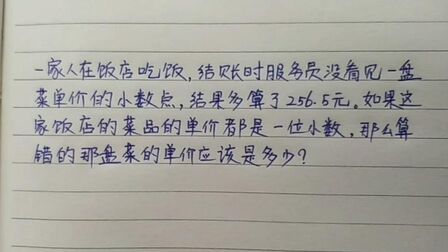 一家人在饭店吃饭,结账时服务员没看见一盘
菜单价的小数点,结果多算了256.5元。如果这
家饭店的菜品的单价都是一位小数,那么算
错的那盘菜的单价应该是多少?